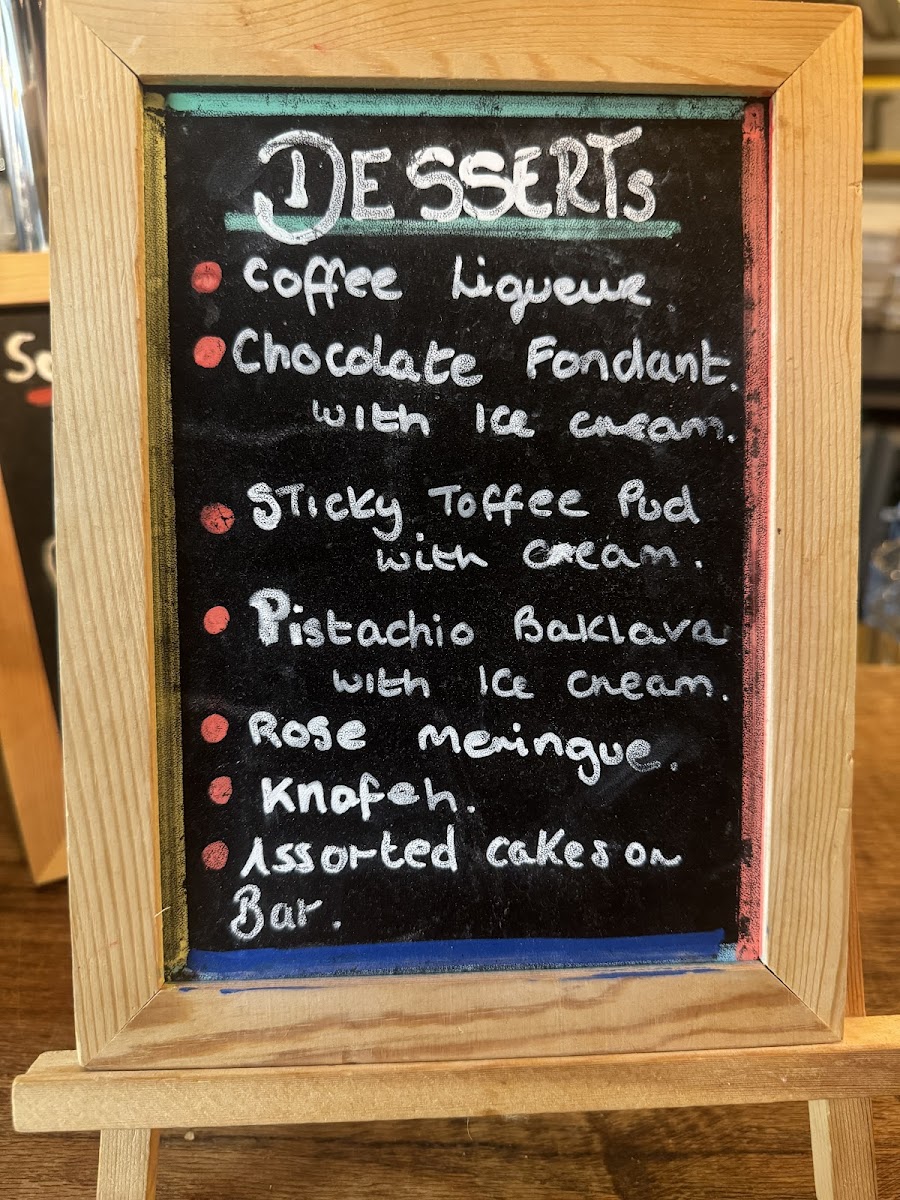 DESSERTs
Coffee Liqueur
Chocolate Fondant.
with Ice cream.
Sticky Toffee Pud
with cream.
Pistachio Baklava
with Ice cream.
Rose meringue.
Knafeh.
Assorted cakes on
Bar.